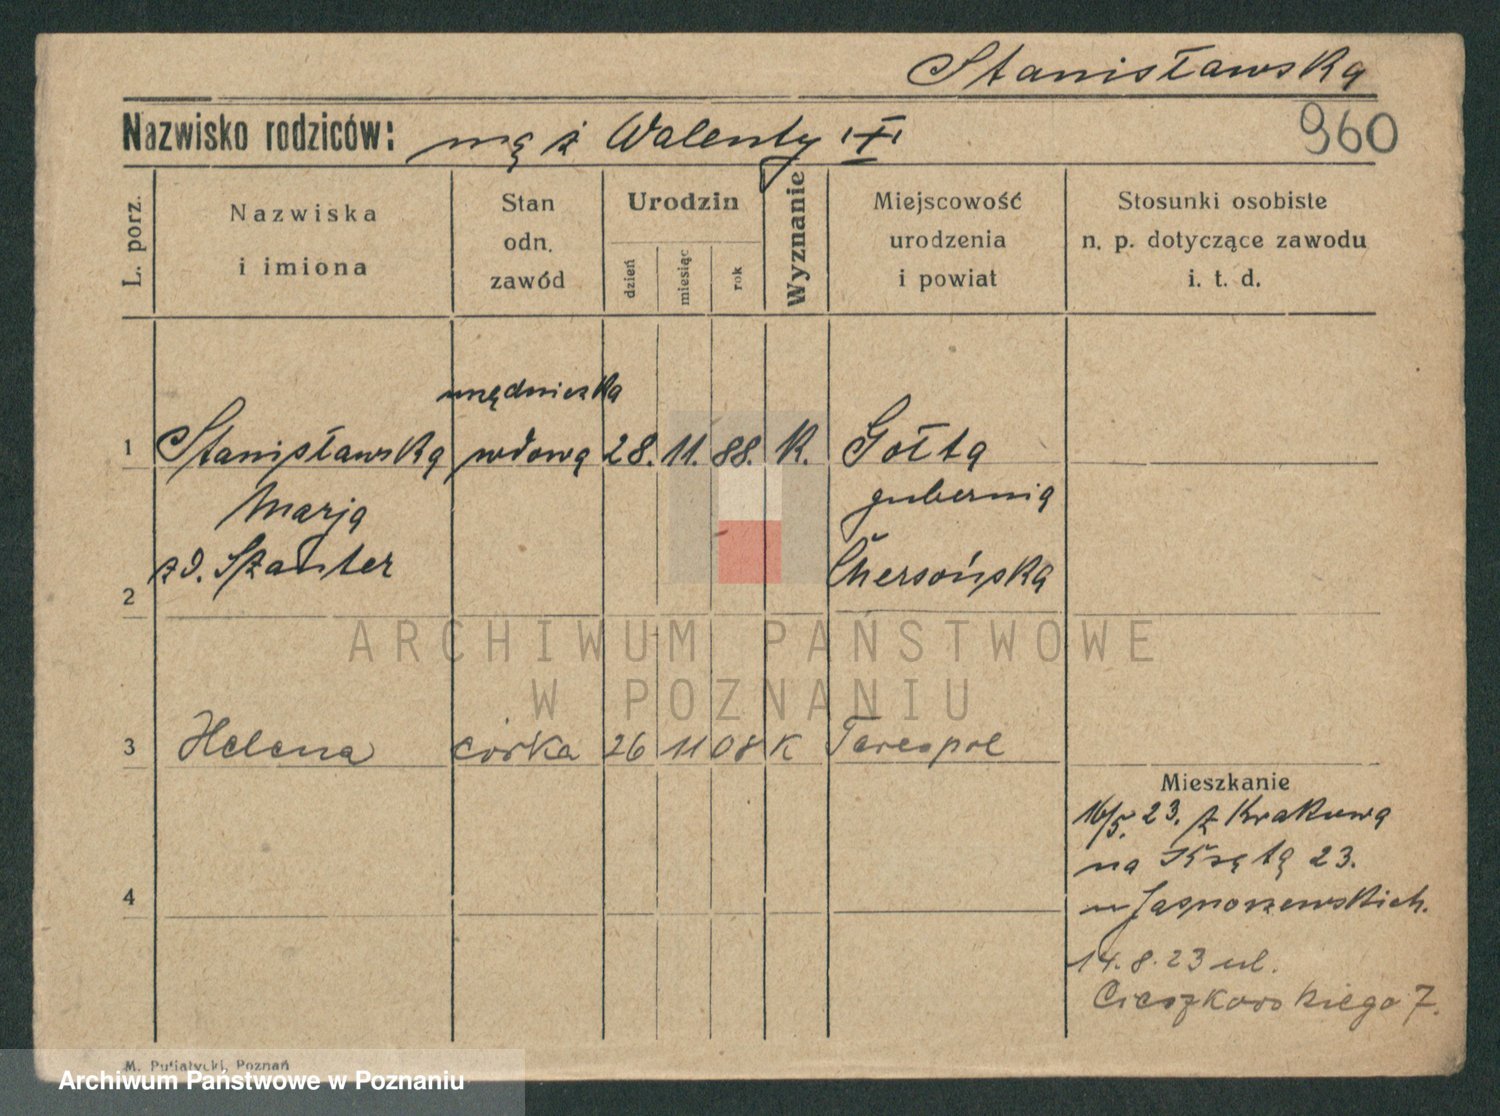 Stanisławska
960
Nazwisko rodziców: mąż Walenty
L. porz.
Nazwiska
i imiona
Stan
odn.
zawód
Urodzin
dzień
miesiąc
rok
Wyznanie
Miejscowość
urodzenia
i powiat
Stosunki osobiste
n. p. dotyczące zawodu
i. t. d.
urzędniczka
1 Stanisławska wdowa 28. 11. 88. K. Gołta
Marja gubernia
zd. Szanter Chersońska
2
ARCHIWUM PAŃSTWOWE
W POZNANIU
3 Helena córka 26 11 08 K
Mieszkanie
16/5. 23. z Krakowa
na 23.
u Jasnorzewskich.
4
14. 8. 23 ul.
Cieszkowskiego 7.
M. Putiatycki, Poznań
Archiwum Państwowe w Poznaniu